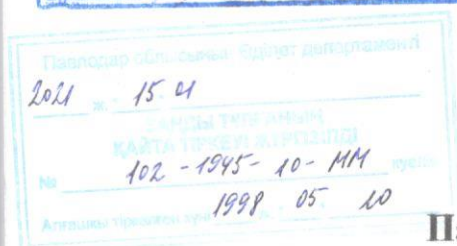 Павлодар облысының Әділет департаменті
2021 ж. 15 01
ЗАҢДЫ ТҰЛҒАНЫҢ
ҚАЙТА ТІРКЕУІ ЖҮРГІЗІЛДІ
№ 102-1945-10-ММ куәлік
Алғашқы тіркелген күні 1998 ж. 05 20